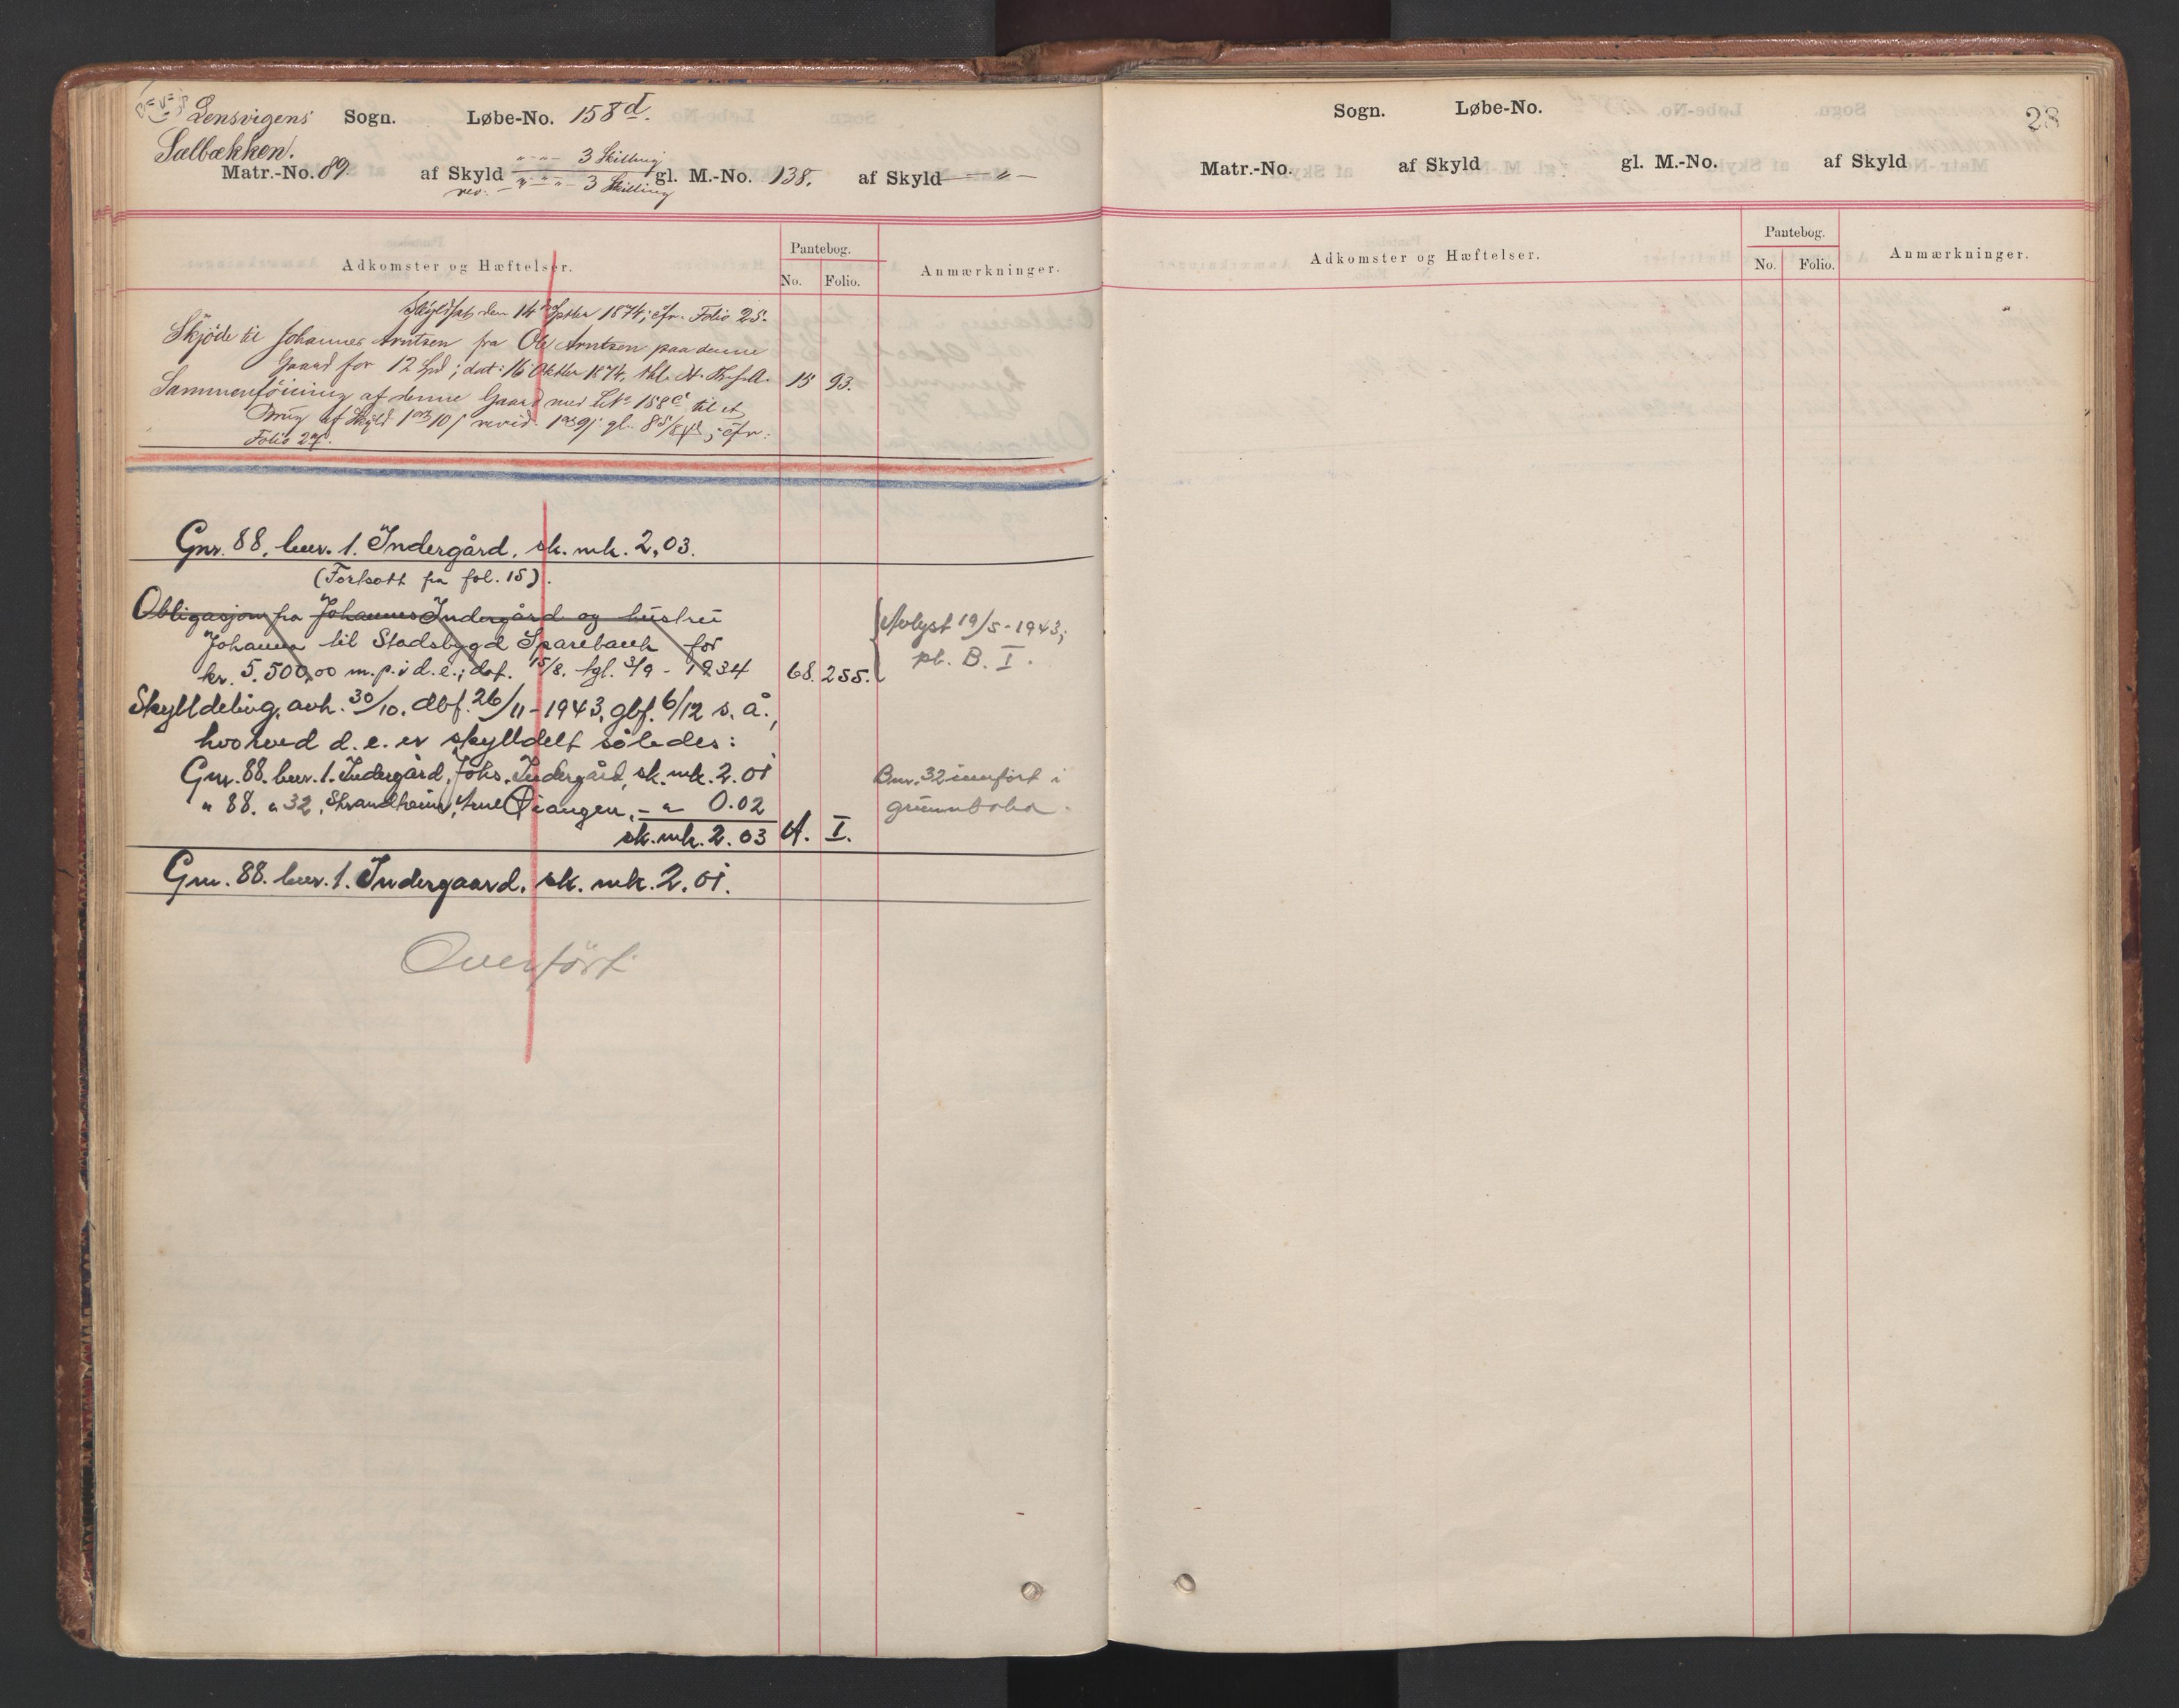 Lensvigens Sogn. Løbe-No. 158 d.
Sælbækken.
Matr.-No. 89 af Skyld " - " - 3 Skilling gl. M.-No. 138. af Skyld — " —
rev. - " - " - 3 Skilling
Adkomster og Hæftelser.
Pantebog.
No. Folio.
Anmærkninger.
Skyldsat den 14de Septbr 1874; cfr. Folio 25.
Skjöde til Johannes Arntzen fra Ole Arntzen paa denne
Gaard for 12 Spd; dat: 16 Oktbr 1874, thl. 15 93.
Sammenföining af denne Gaard med LNo 158c til et
Brug af Skyld 1 ort 10 s revid. 1 ort 9 s gl. cfr:
Folio 27.
Gnr. 88, bnr. 1. Indergård, sk. mk. 2,03.
(Fortsatt fra fol. 15).
Obligasjon fra Johannes Indergård og hustru
Johanna til Stadsbygd Sparebank for
kr. 5.500,00 m. p. i d. e.; dat. 15/8. tgl. 3/9 - 1934 68. 255.
Avlyst 19/5-1943;
pb. B. I.
Skylldeling, avh. 30/10. dbf. 26/11-1943, gbf. 6/12 s. å.,
hvorved d. e. er skylldelt således:
Gnr. 88. bnr. 1. Indergård, Johs. Indergård, sk. mk. 2.01
" 88. " 32, Strandheim, Arne Qvangen, - " 0.02
sk. mk. 2.03 A. I.
Bnr. 32 innført i
grunnboka.
Gnr. 88. bnr. 1. Indergaard. sk. mk. 2.01.
Overført
28
Sogn. Løbe-No.
Matr.-No. af Skyld gl. M.-No. af Skyld
Adkomster og Hæftelser.
Pantebog.
No. Folio.
Anmærkninger.